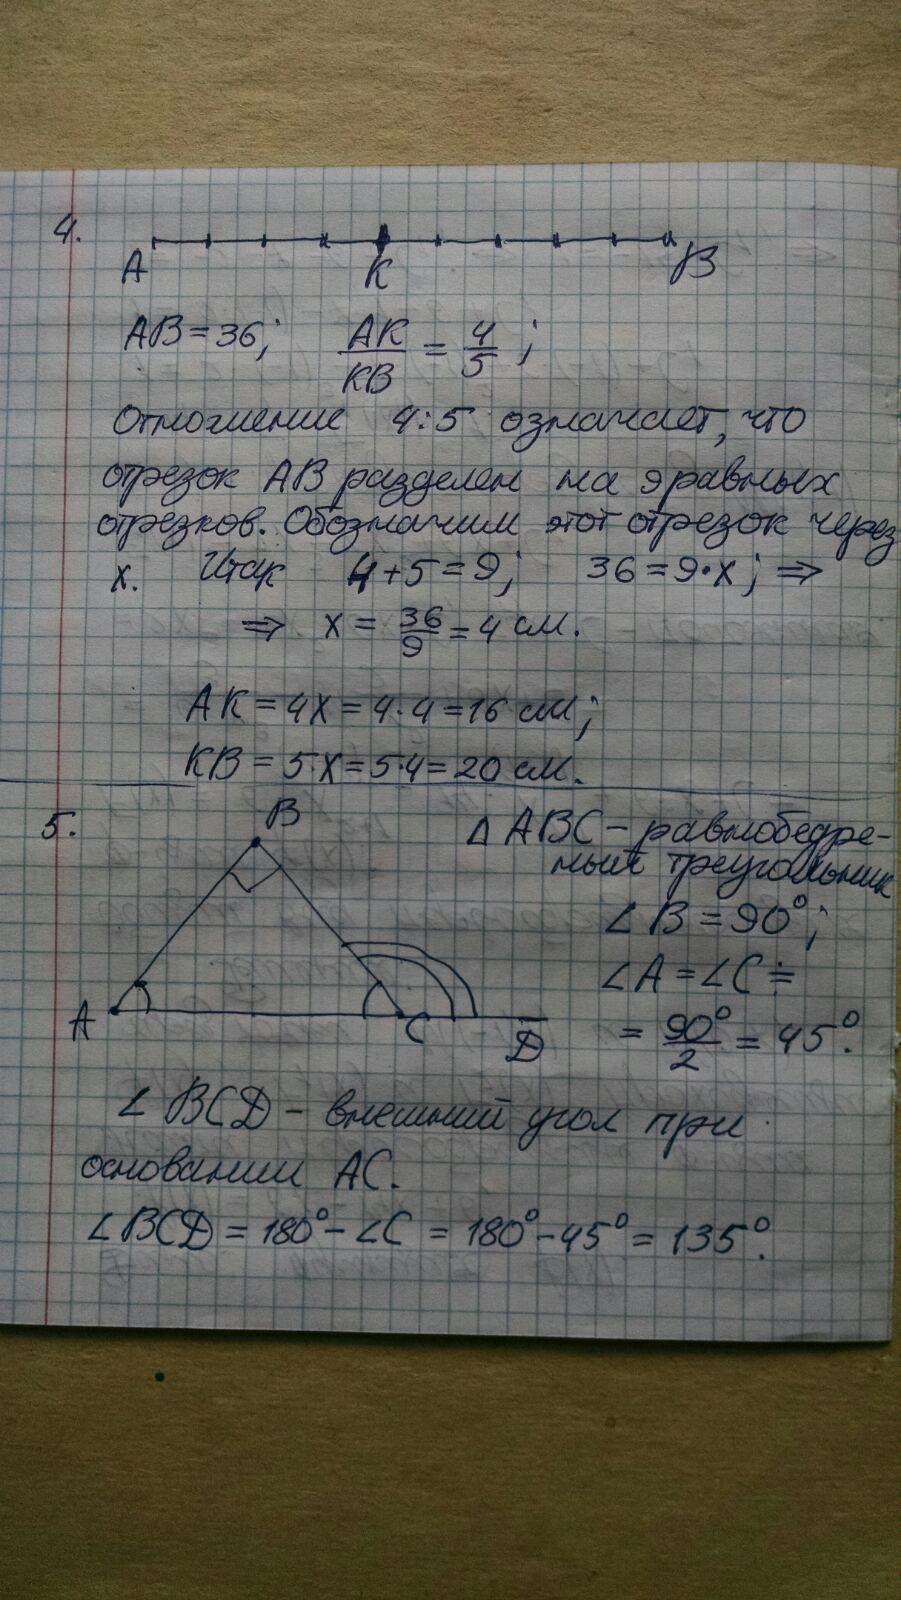 4.
A K B
AB = 36; AK/KB = 4/5;
Отношение 4:5 означает, что
отрезок AB разделен на 9 равных
отрезков. Обозначим этот отрезок через
x. Итак 4+5=9; 36=9·x; ⇒
⇒ x = 36/9 = 4 см.
AK = 4x = 4·4 = 16 см;
KB = 5·x = 5·4 = 20 см.
5.
B
A C D
Δ ABC – равнобедре-
ный треугольник
∠B = 90°;
∠A = ∠C =
= 90°/2 = 45°.
∠BCD – внешний угол при
основании AC.
∠BCD = 180° – ∠C = 180° – 45° = 135°.